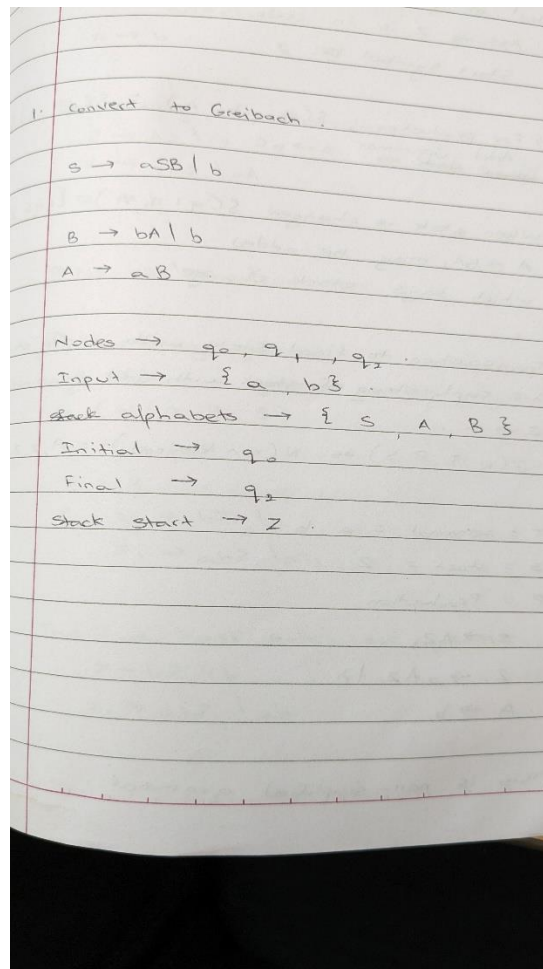 1. Convert to Greibach.
S → aSB | b
B → bA | b
A → aB
Nodes → q₀, q₁, q₂.
Input → { a, b }.
stack alphabets → { S, A, B }
Initial → q₀
Final → q₂
Stack start → Z.